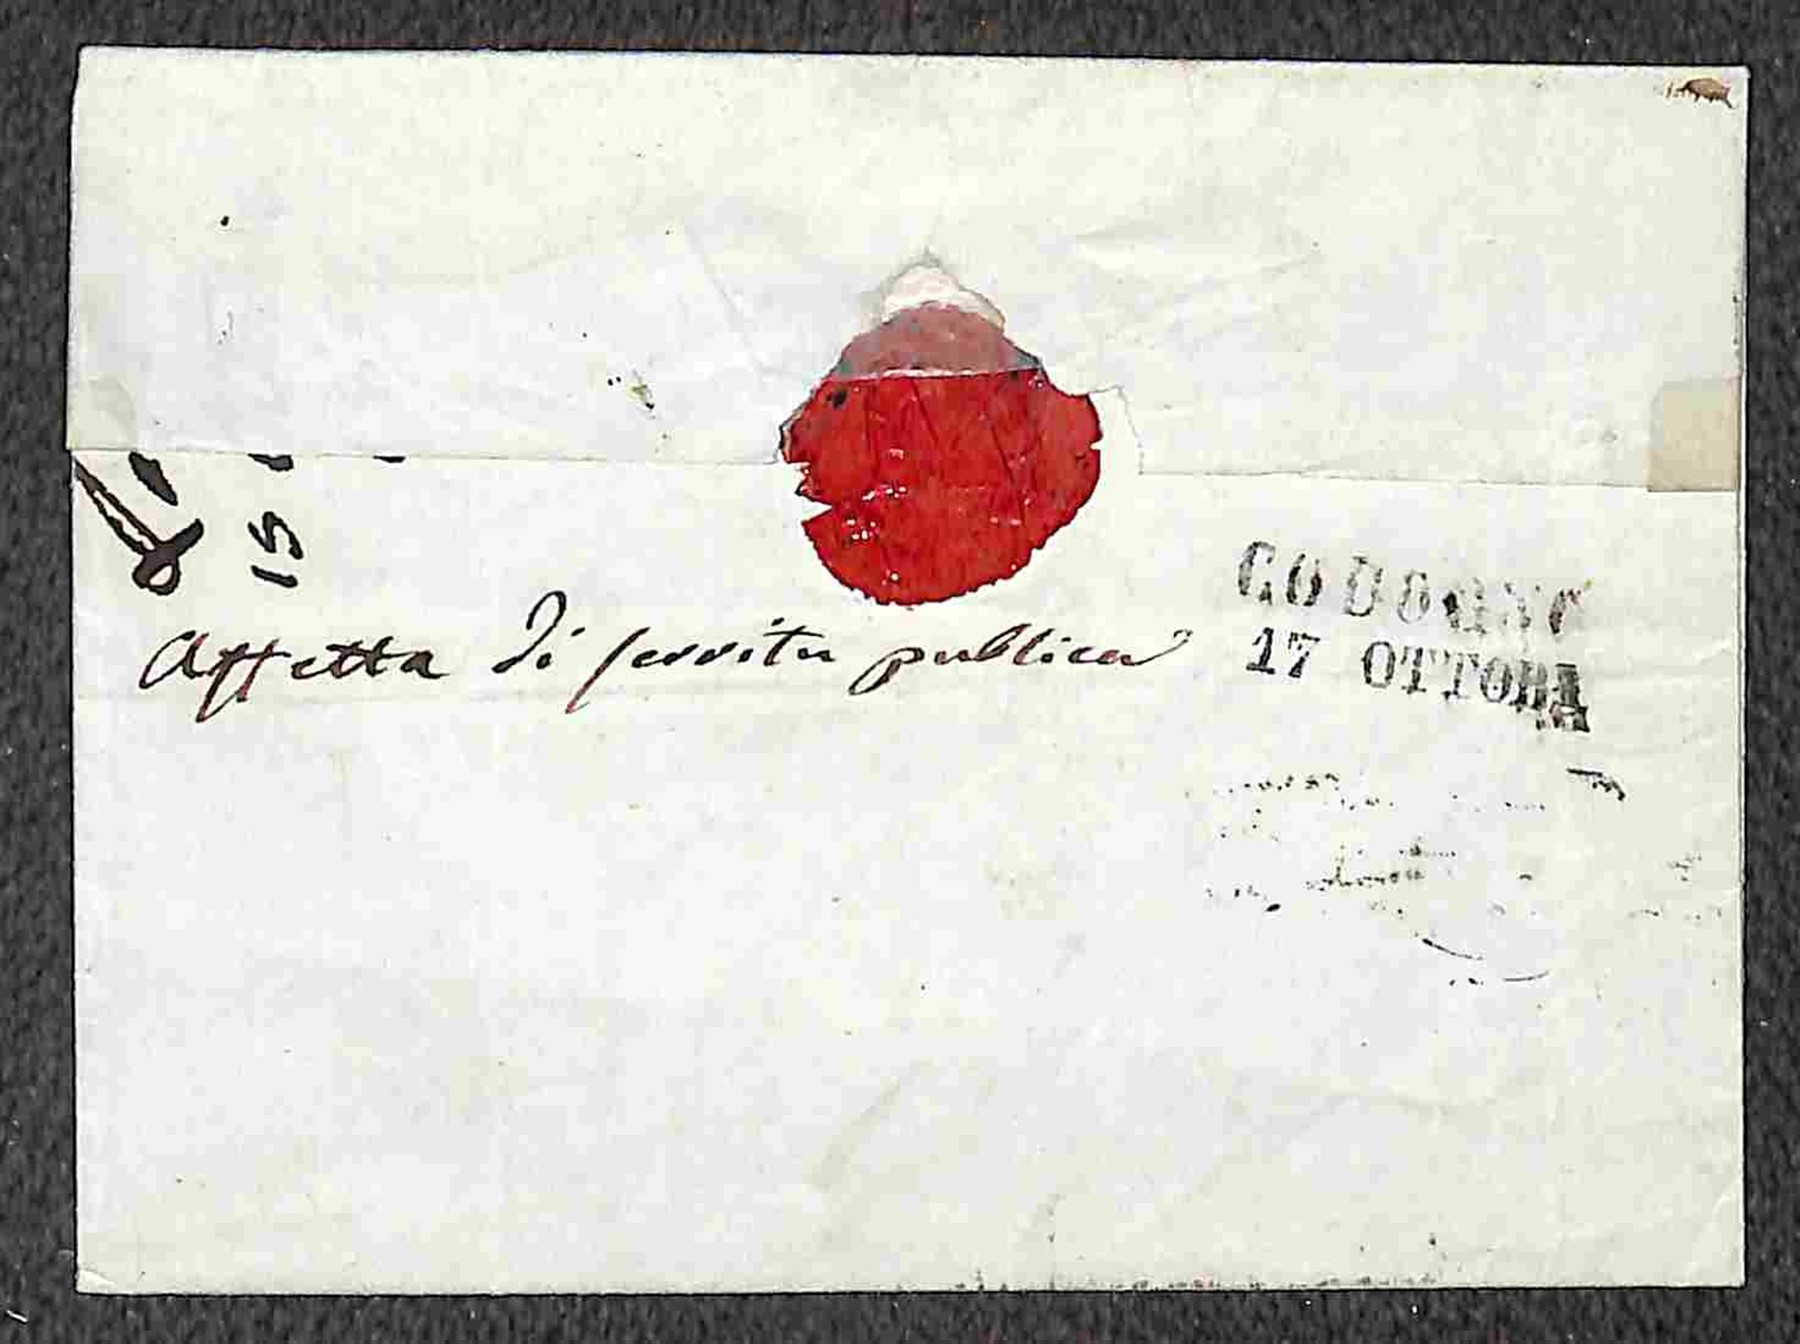 15
Affetta di servitu publica
CODOGNO
17 OTTOBR